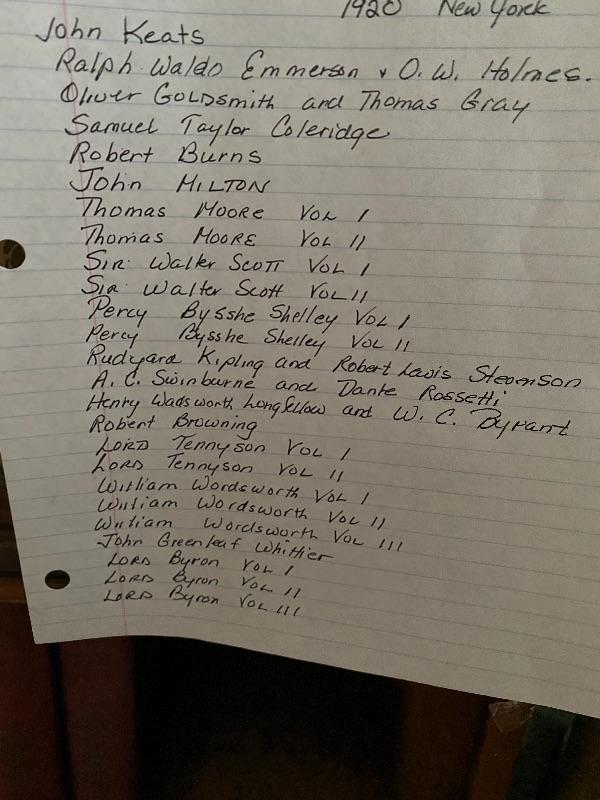 1920 New York
John Keats
Ralph Waldo Emmerson & O. W. Holmes.
Oliver GOLDSmith and Thomas Gray
Samuel Taylor Coleridge
Robert Burns
John MILTON
Thomas MOORE VOL I
Thomas MOORE VOL II
SIR Walter SCOTT VOL I
SIR Walter Scott VOL II
Percy Bysshe Shelley VOL I
Percy Bysshe Shelley VOL II
Rudyard Kipling and Robert Lewis Stevenson
A. C. Swinburne and Dante Rossetti
Henry Wadsworth Longfellow and W. C. Byrant
Robert Browning
LORD Tennyson VOL I
LORD Tennyson VOL II
William Wordsworth VOL I
William Wordsworth VOL II
William Wordsworth VOL III
John Greenleaf Whittier
LORD Byron VOL I
LORD Byron VOL II
LORD Byron VOL III